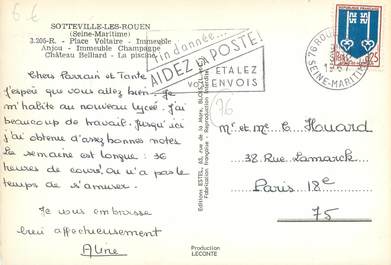 6 €
SOTTEVILLE-LES-ROUEN
(Seine-Maritime)
3.205-R. - Place Voltaire - Immeuble
Anjou - Immeuble Champagne
Château Belliard - La piscine
fin d'année...
AIDEZ LA POSTE!
ETALEZ
VOS ENVOIS
76 ROUEN
1967
SEINE-MARITIME
REPUBLIQUE FRANÇAISE
0,25
POSTES
76
Chers Parrain et Tante
J'espère que vous allez bien. Je
m'habite au nouveau lycée. J'ai
beaucoup de travail. Jusqu'ici
j'ai obtenu d'assez bonnes notes
La semaine est longue : 36
heures de cours, on n'a pas le
temps de s'amuser.
Je vous embrasse
bien affectueusement
Aline
Editions ESTEL, 63, rue de la Mare, BLOIS
Fabrication Française - Reproduction interdite
Mr et Mme C. Houard
38 Rue Lamarck
Paris 18e
75
Production
LECONTE